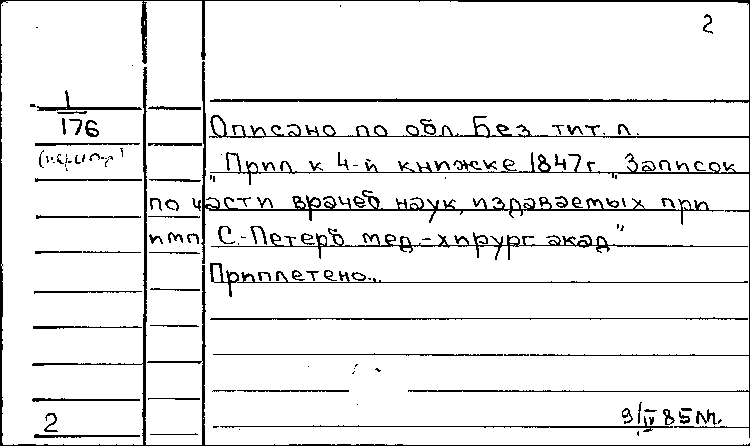 2
1/176
Описано по обл. Без тит. л.
„Прил к 4-й книжке 1847г. „Записок
по части врачеб. наук, издаваемых при
имп. С.-Петерб мед.-хирург. акад"
Приплетено..
2
9/IV 85